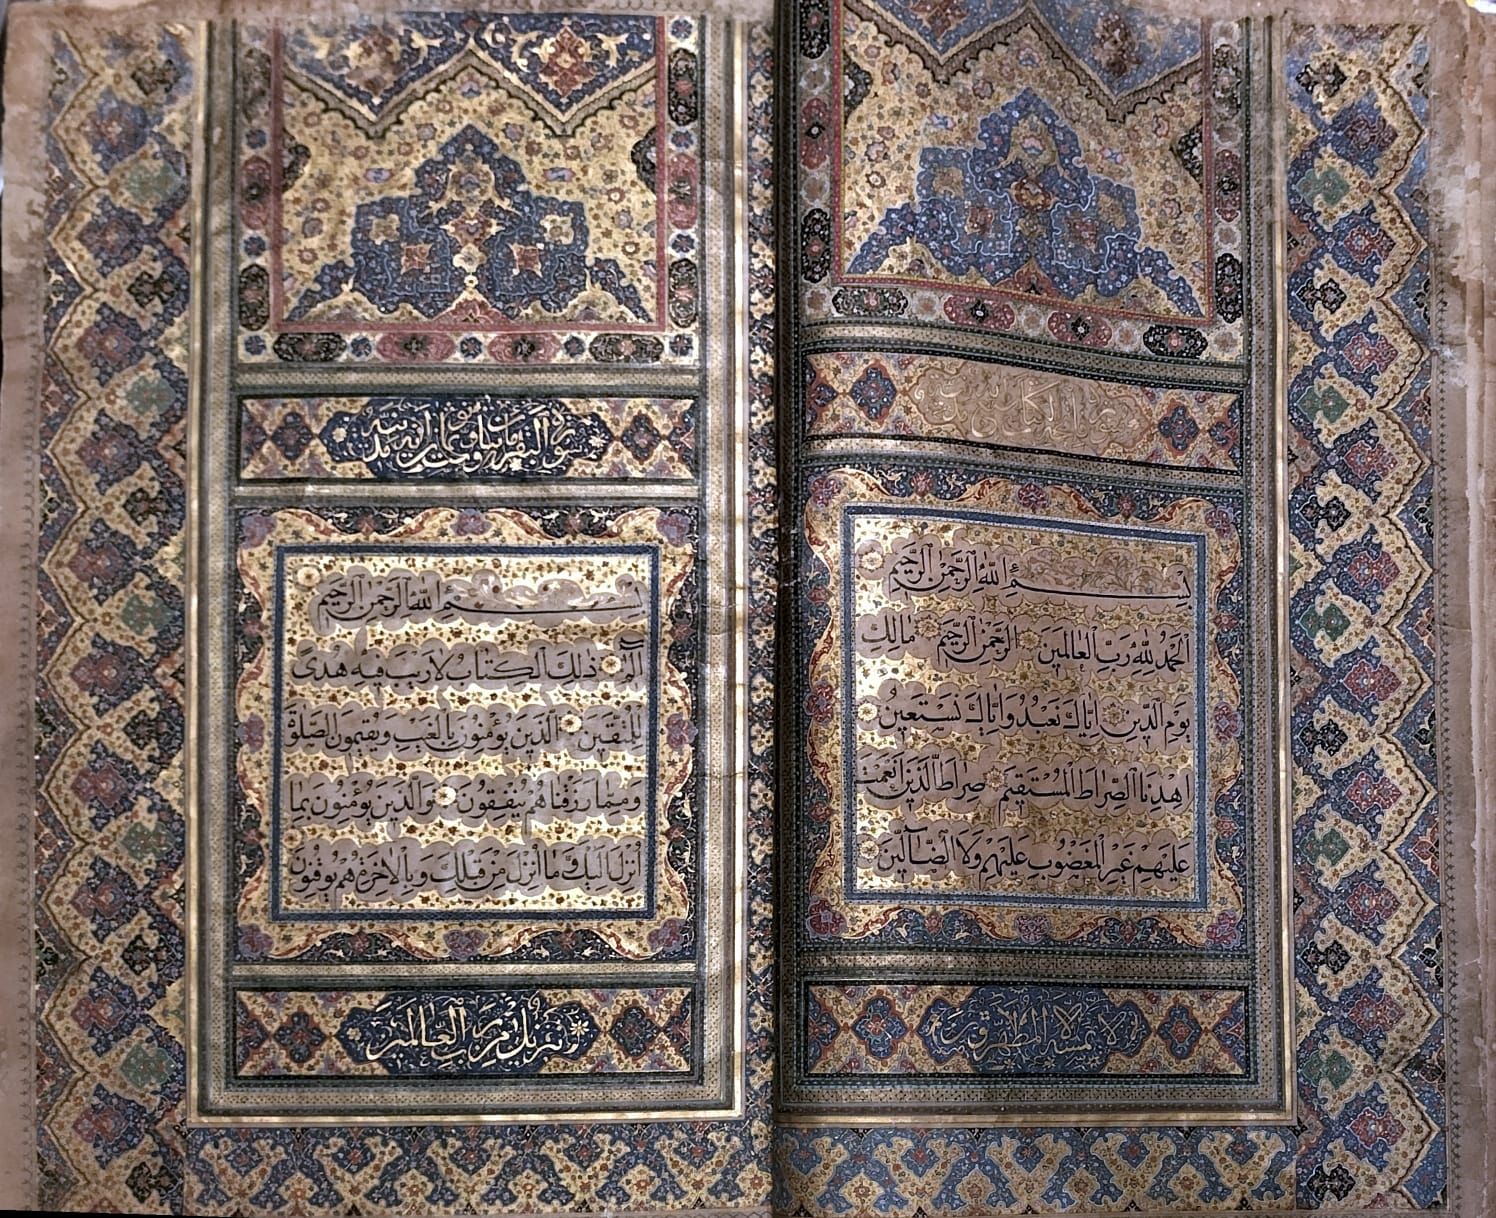 سورة فاتحة الكتاب
بسم الله الرحمن الرحيم
الحمد لله رب العالمين الرحمن الرحيم مالك
يوم الدين اياك نعبد واياك نستعين
اهدنا الصراط المستقيم صراط الذين انعمت
عليهم غير المغضوب عليهم ولا الضالين
لا يمسه الا المطهرون
سورة البقرة مائتان وثمانون آية مدنية
بسم الله الرحمن الرحيم
الم ذلك الكتاب لا ريب فيه هدى
للمتقين الذين يؤمنون بالغيب ويقيمون الصلاة
ومما رزقناهم ينفقون والذين يؤمنون بما
انزل اليك وما انزل من قبلك وبالاخرة هم يوقنون
تنزيل من رب العالمين